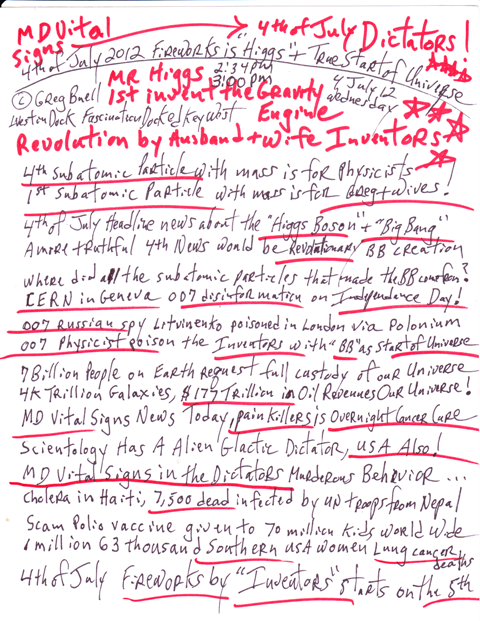 MD Vital Signs → 4th of July Dictators!
4th of July 2012 Fireworks is "Higgs" + True Start of Universe
MR Higgs 2:34 pm 3:00 pm 4 July 12
© Greg Buell 1st invent the Gravity Wednesday
Westin Dock Fascination Dock / Key West Engine
Revolution by Husband + Wife Inventors
4th subatomic Particle with mass is for Physicists
1st Subatomic Particle with mass is for Greg + Wives!
4th of July Headline news about the "Higgs Boson" + "Big Bang"
A more truthful 4th News would be Revolutionary BB creation
where did all the subatomic particles that made the BB come from?
CERN in Geneva 007 disinformation on Independance Day!
007 Russian spy Litvinenko poisoned in London via Polonium
007 Physicist poison the Inventors with "BB" as Start of Universe
7 Billion People on Earth Request full custody of our Universe
4K Trillion Galaxies, $177 Trillion in Oil Revenues Our Universe!
MD Vital Signs News Today, pain killers is overnight Cancer Cure
Scientology Has A Alien Glactic Dictator, USA Also!
MD Vital Signs in the Dictators Murderous Behavior...
Cholera in Haiti, 7,500 dead infected by UN troops from Nepal
Scam Polio vaccine given to 70 million Kids world wide
1 million 63 thousand Southern USA women Lung cancer deaths
4th of July Fireworks by "Inventors" starts on the 5th